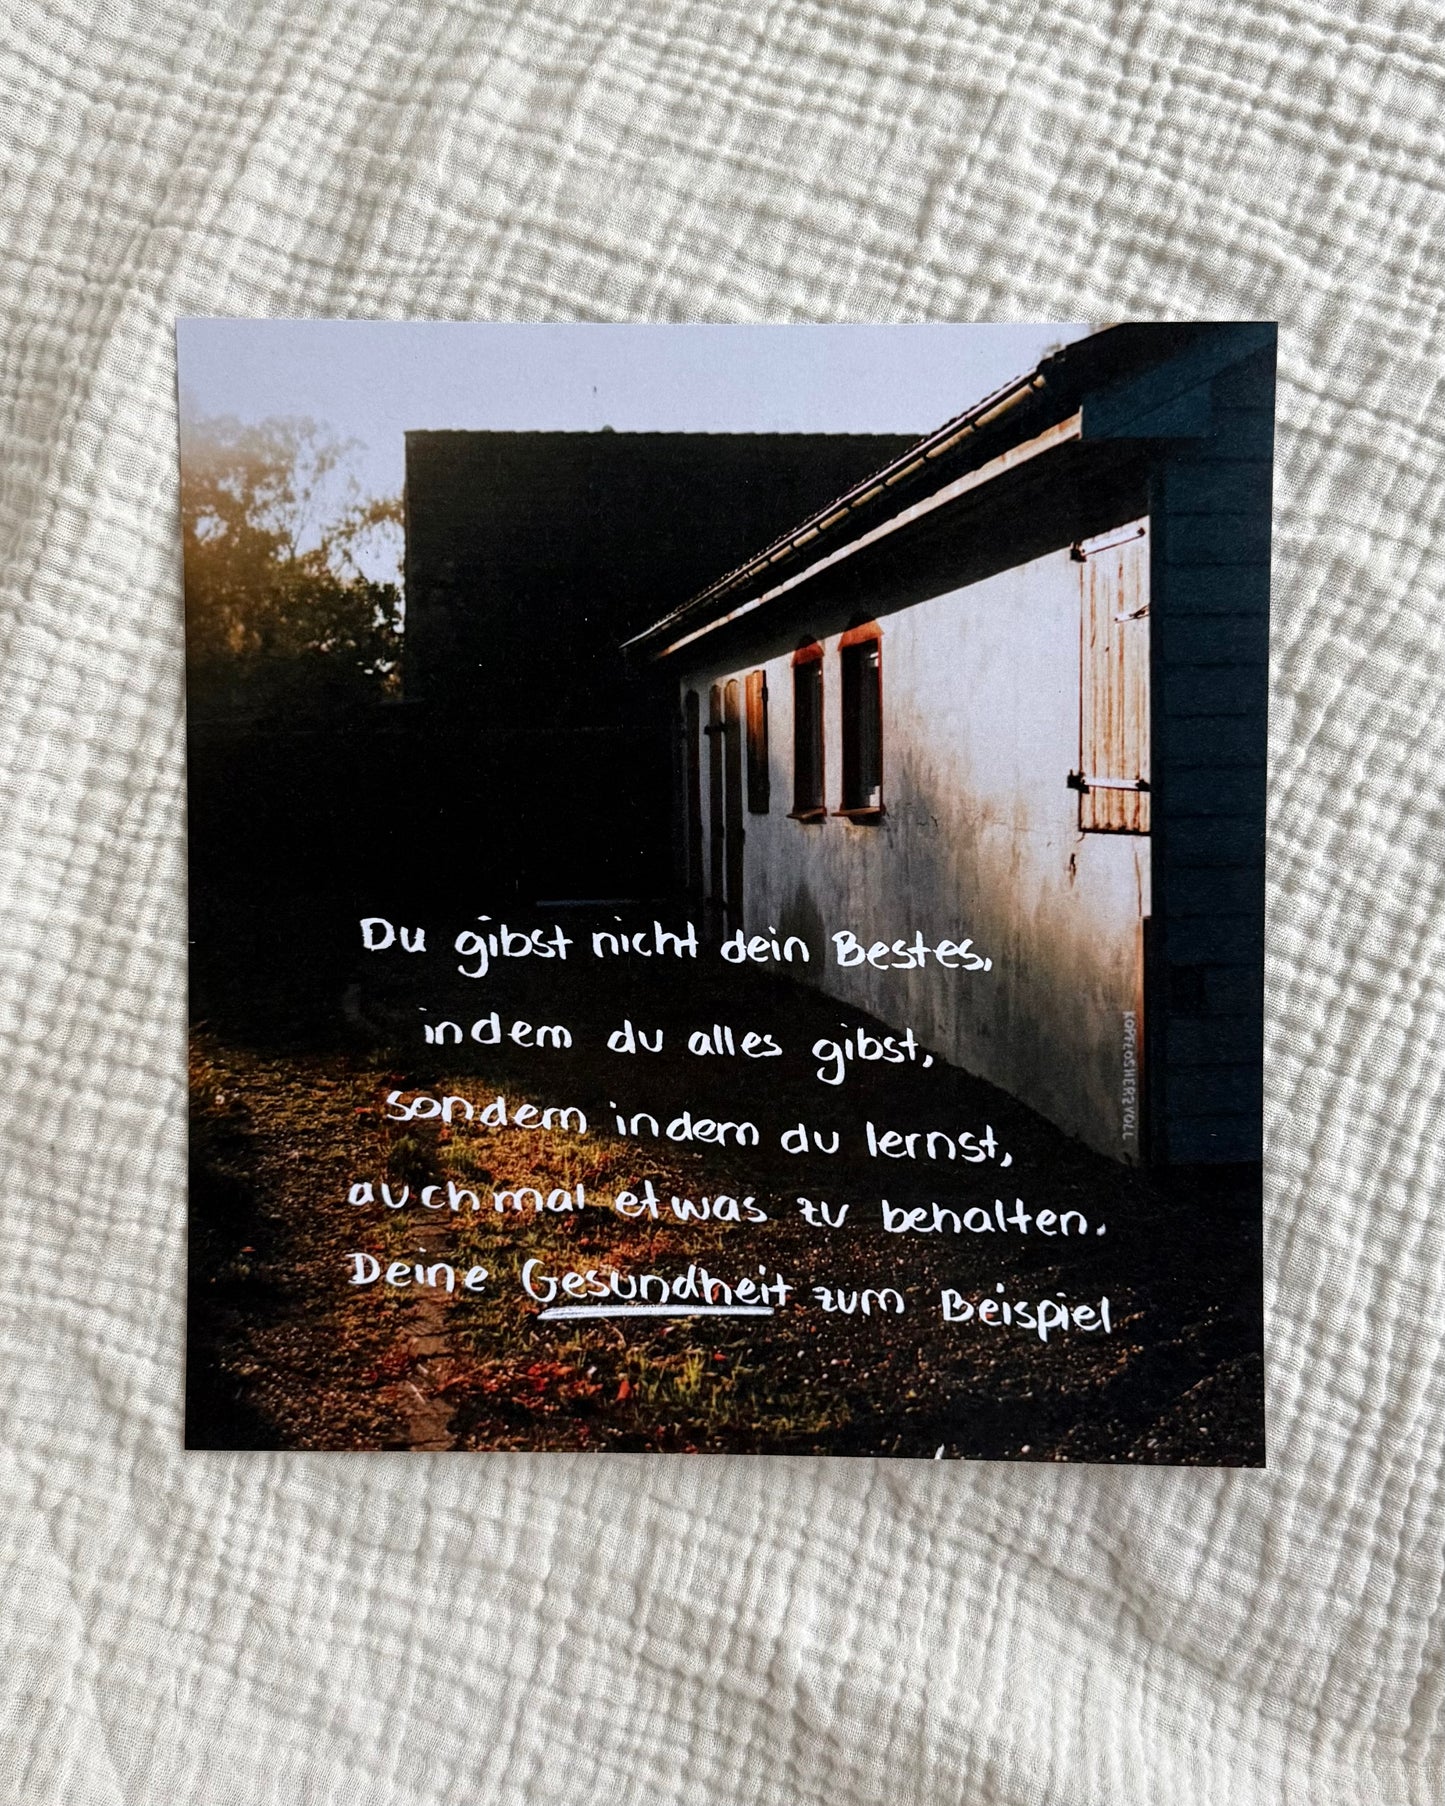 Du gibst nicht dein Bestes,
indem du alles gibst,
sondern indem du lernst,
auch mal etwas zu behalten.
Deine Gesundheit zum Beispiel
KOPFLOSHERZVOLL